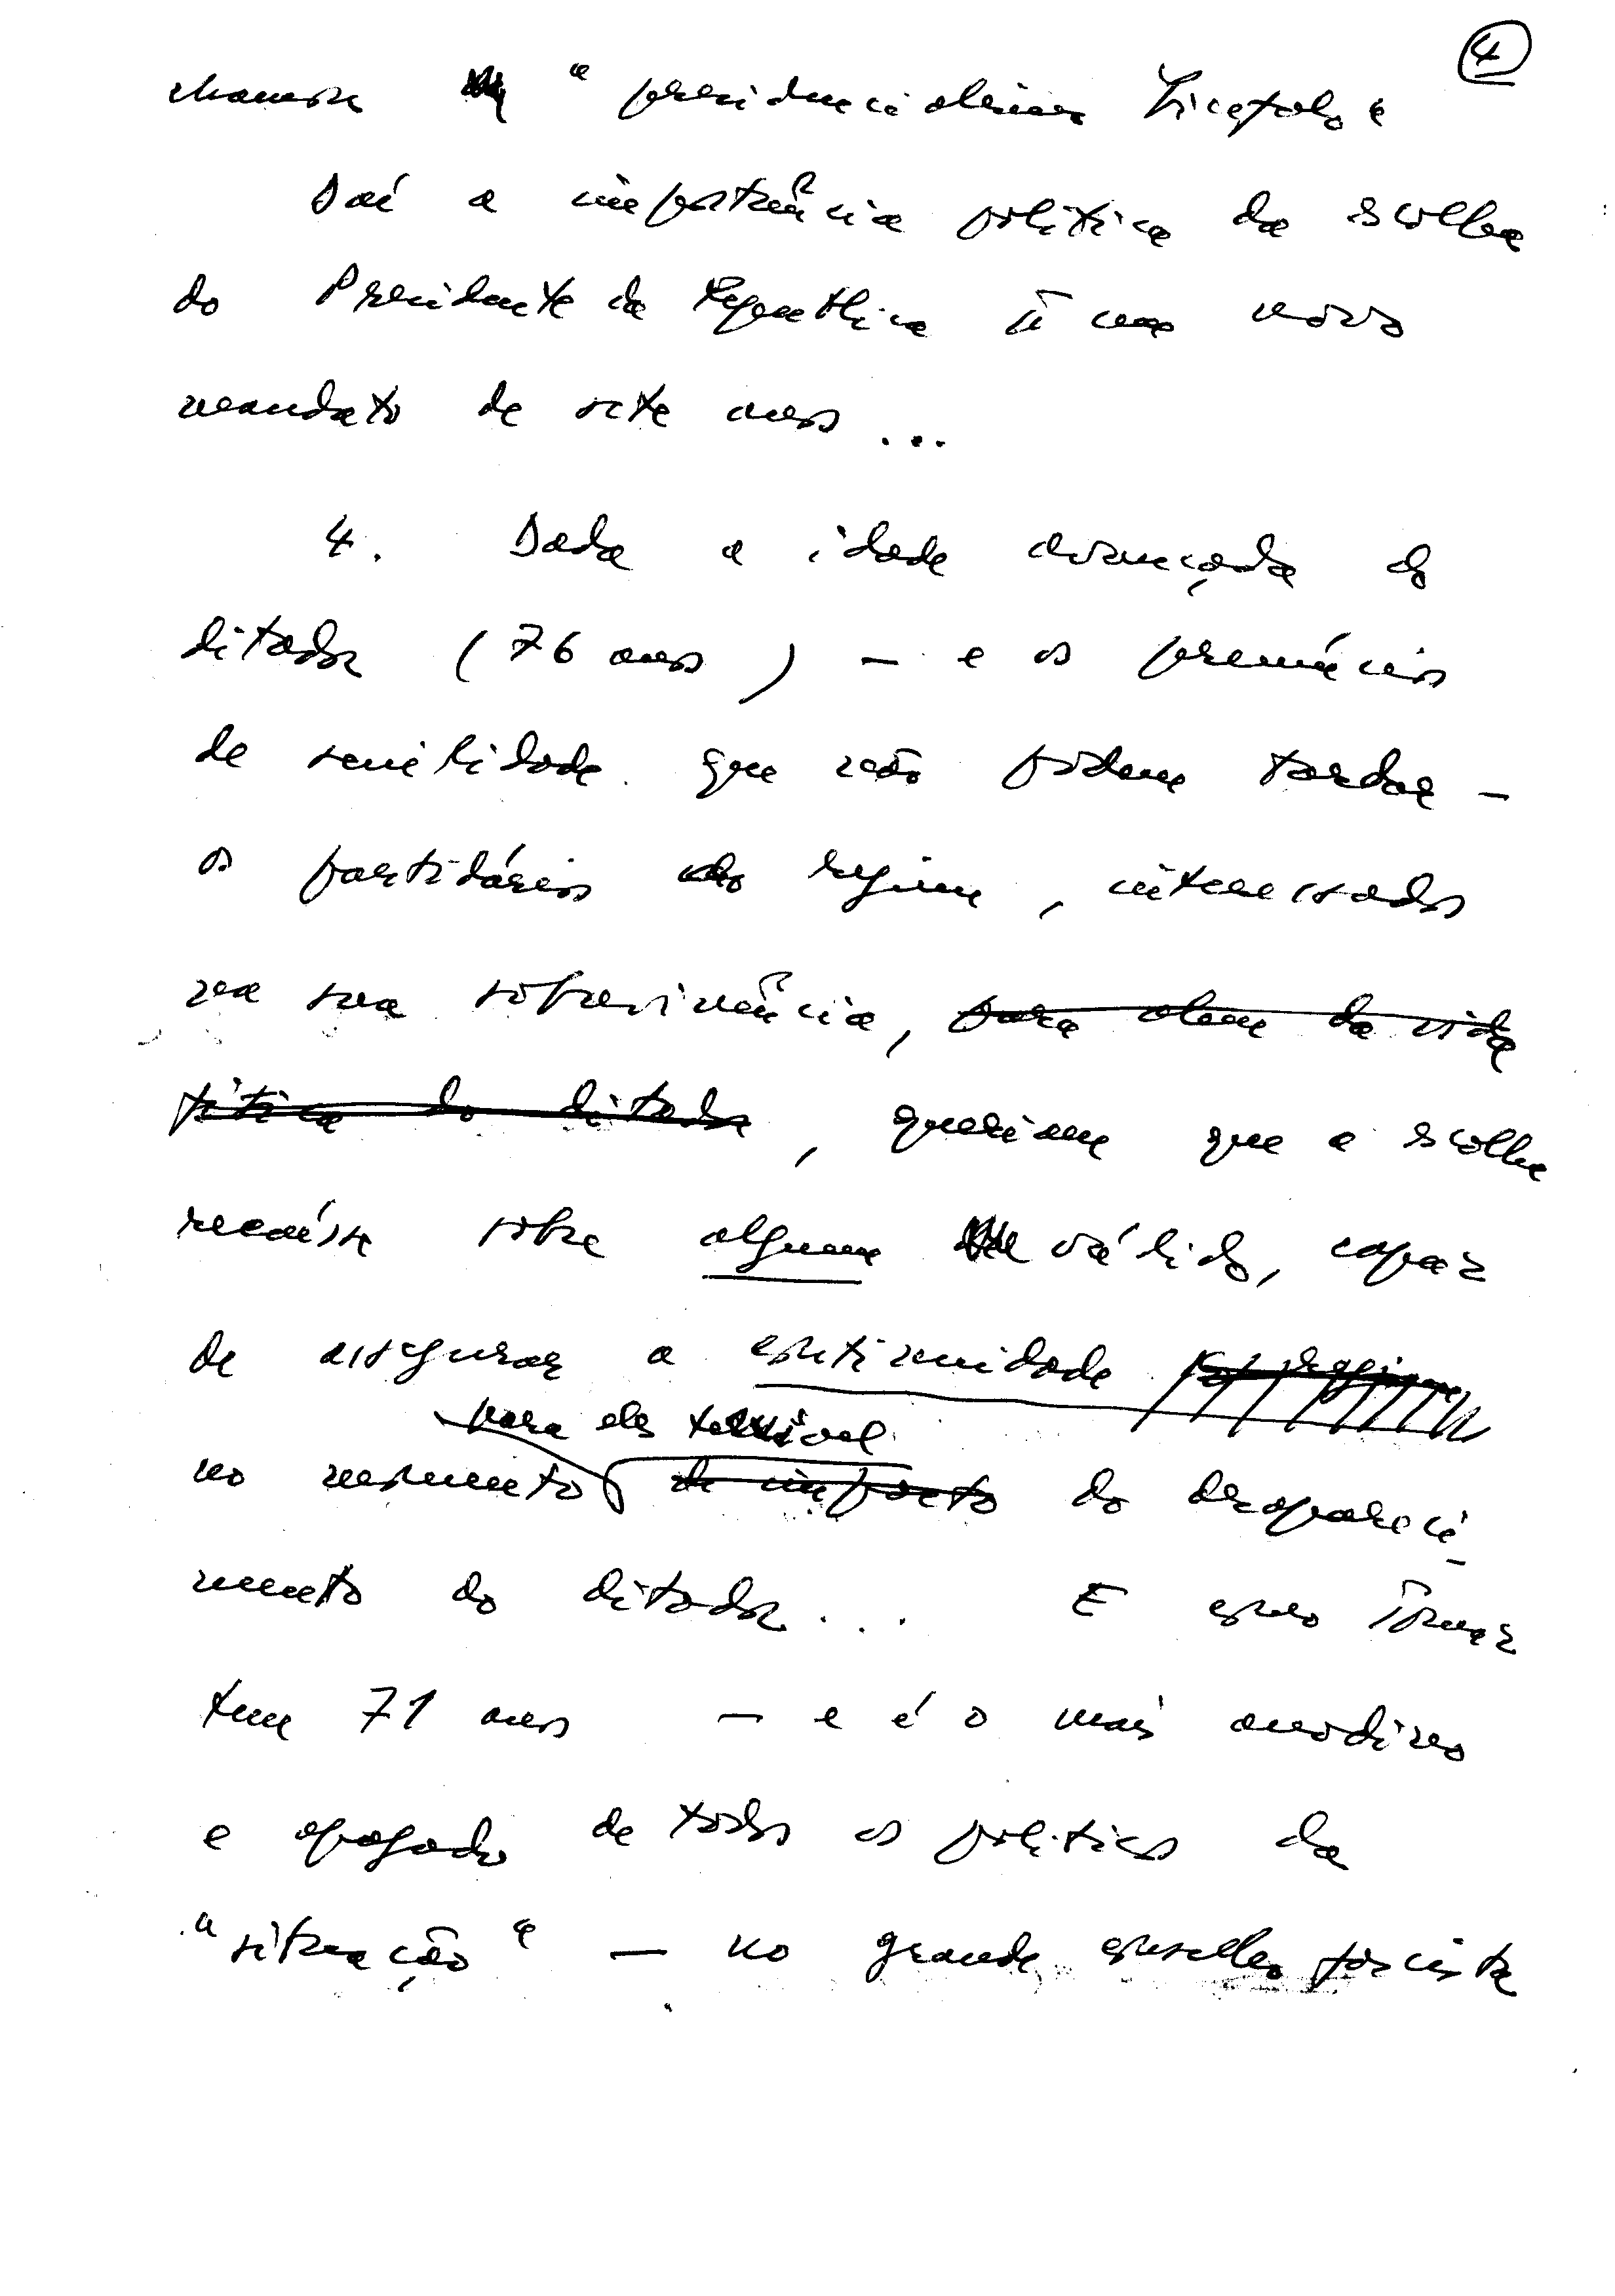 4
chamar " presidencialismo bicéfalo "
Daí a importância política da escolha
do Presidente da República p.ª um novo
mandato de sete anos ...
4. Dada a idade avançada do
ditador (76 anos) – e os prenúncios
de senilidade que não podem tardar –
os partidários do regime, interessados
na sua sobrevivência, para alem da vida
física do ditador, queriam que a escolha
recaísse sobre alguem válido, capaz
de assegurar a continuidade do regime
para eles terrível
no momento de impacto do desapareci-
mento do ditador... E esse Tomaz
tem 71 anos – e é o mais anodino
e apagado de todos os politicos da
"situação" – no grande fascista